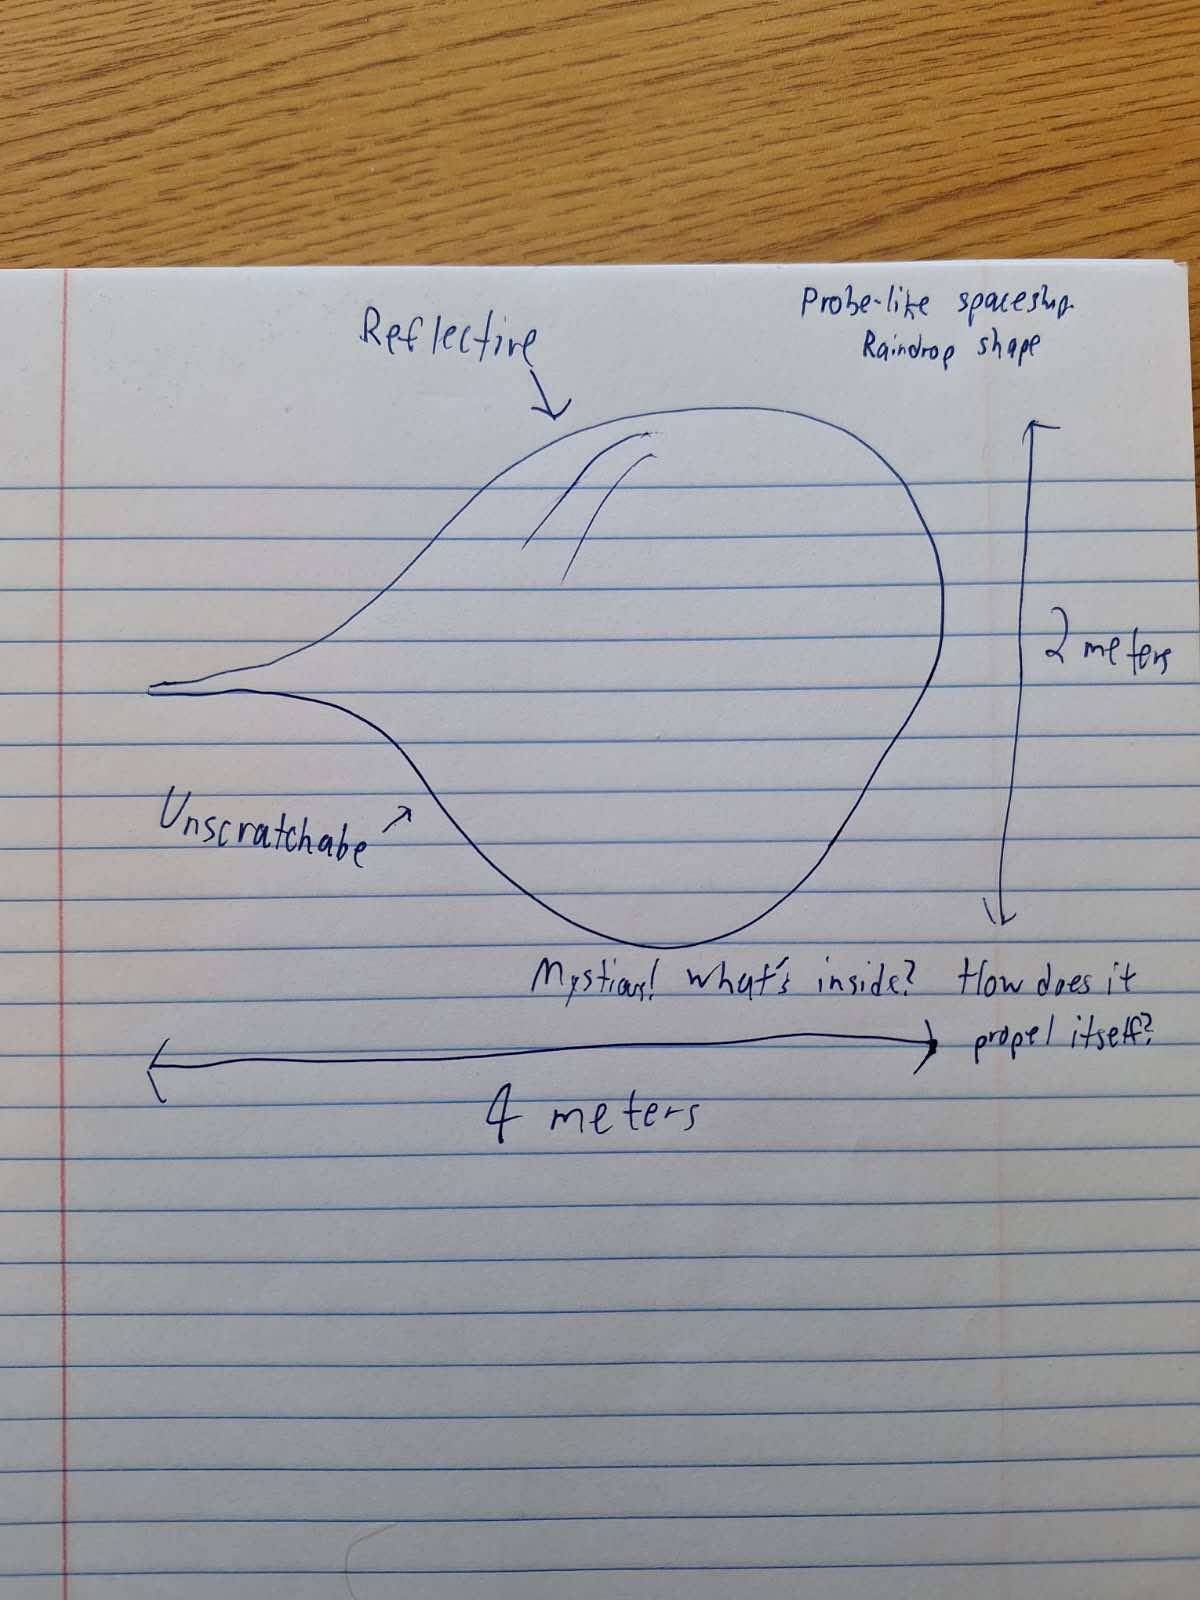 Probe-like spaceship
Raindrop shape
Reflective
2 meters
Unscratchabe
Mystious! what's inside? How does it
propel itself?
4 meters